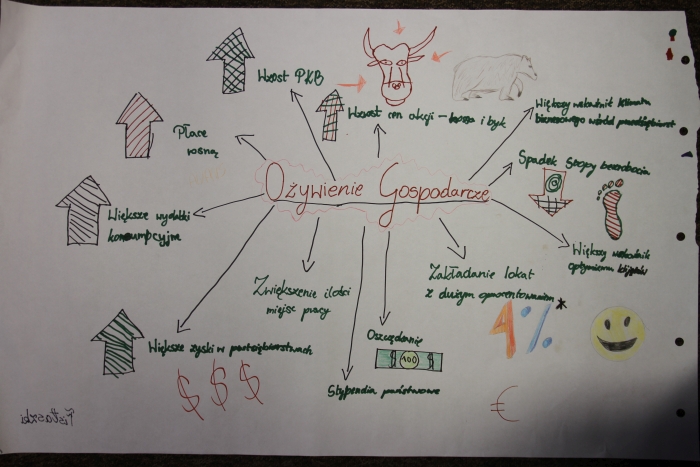 Wzrost PKB
Wzrost cen akcji - hossa i byk
Większy wskaźnik klimatu
biznesowego wśród przedsiębiorst
Płace
rosną
Spadek Stopy bezrobocia
Ożywienie Gospodarcze
Większe wydatki
konsumpcyjne
Większy wskaźnik
optymizmu klijentów
Zwiększenie ilości
miejsc pracy
Zakładanie lokat
z dużym oprocentowaniem*
4%
Większe zyski w przedsiębiorstwach
Oszczędzanie
$ 100 $
$ $ $
Stypendia państwowe
€